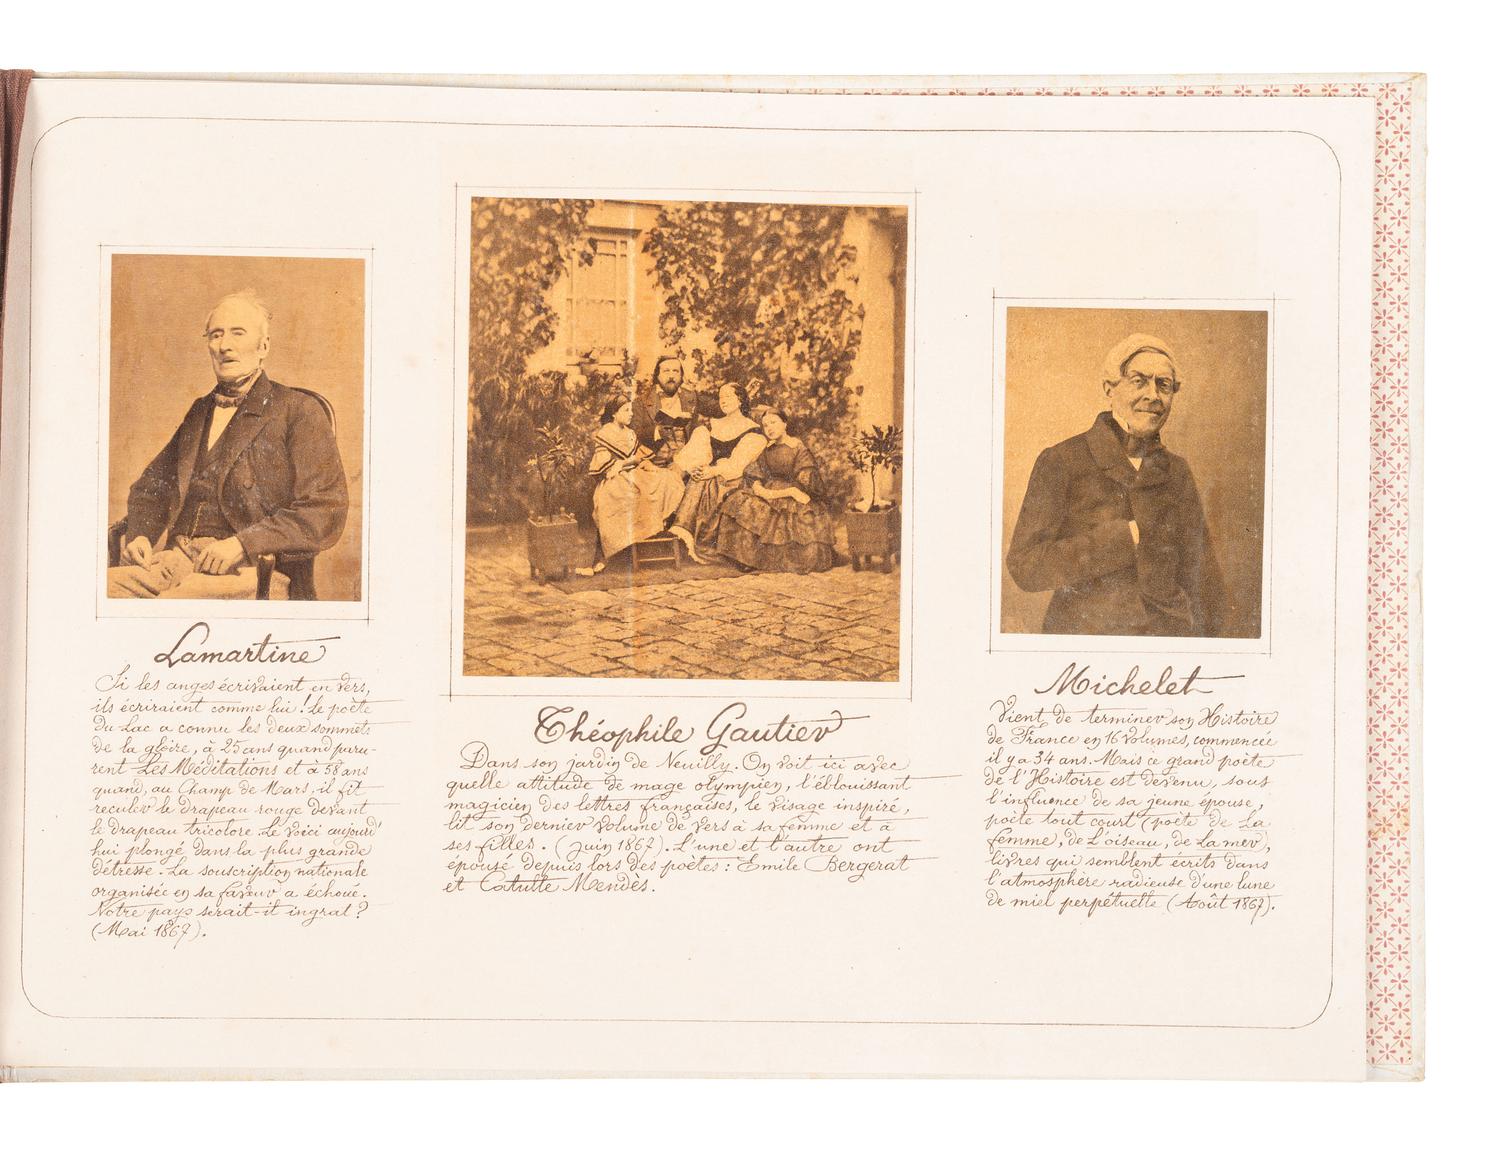 Lamartine
Si les anges écrivaient en vers,
ils écriraient comme lui ! Le poète
du Lac a connu les deux sommets
de la gloire, à 25 ans quand paru-
rent Les Méditations et à 58 ans
quand, au Champ de Mars, il fit
reculer le drapeau rouge devant
le drapeau tricolore. Le voici aujourd'
hui plongé dans la plus grande
détresse. La souscription nationale
organisée en sa faveur a échoué.
Notre pays serait-il ingrat ?
(Mai 1867).
Théophile Gautier
Dans son jardin de Neuilly. On voit ici avec
quelle attitude de mage olympien, l'éblouissant
magicien des lettres françaises, le visage inspiré,
lit son dernier volume de vers à sa femme et à
ses filles. (Juin 1867). L'une et l'autre ont
épousé depuis lors des poètes : Emile Bergerat
et Catulle Mendès.
Michelet
Vient de terminer son Histoire
de France en 16 volumes, commencée
il y a 34 ans. Mais ce grand poète
de l'Histoire est devenu, sous
l'influence de sa jeune épouse,
poète tout court (poète de La
femme, de L'oiseau, de La mer),
livres qui semblent écrits dans
l'atmosphère radieuse d'une lune
de miel perpétuelle (Août 1867).